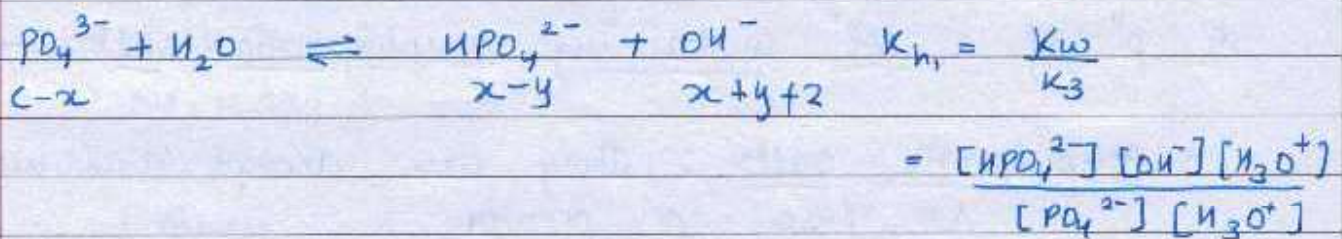 PO₄³⁻ + H₂O ⇌ HPO₄²⁻ + OH⁻ K_h₁ = Kw/K₃
c-x x-y x+y+z
= [HPO₄²⁻] [OH⁻] [H₃O⁺] / [PO₄²⁻] [H₃O⁺]